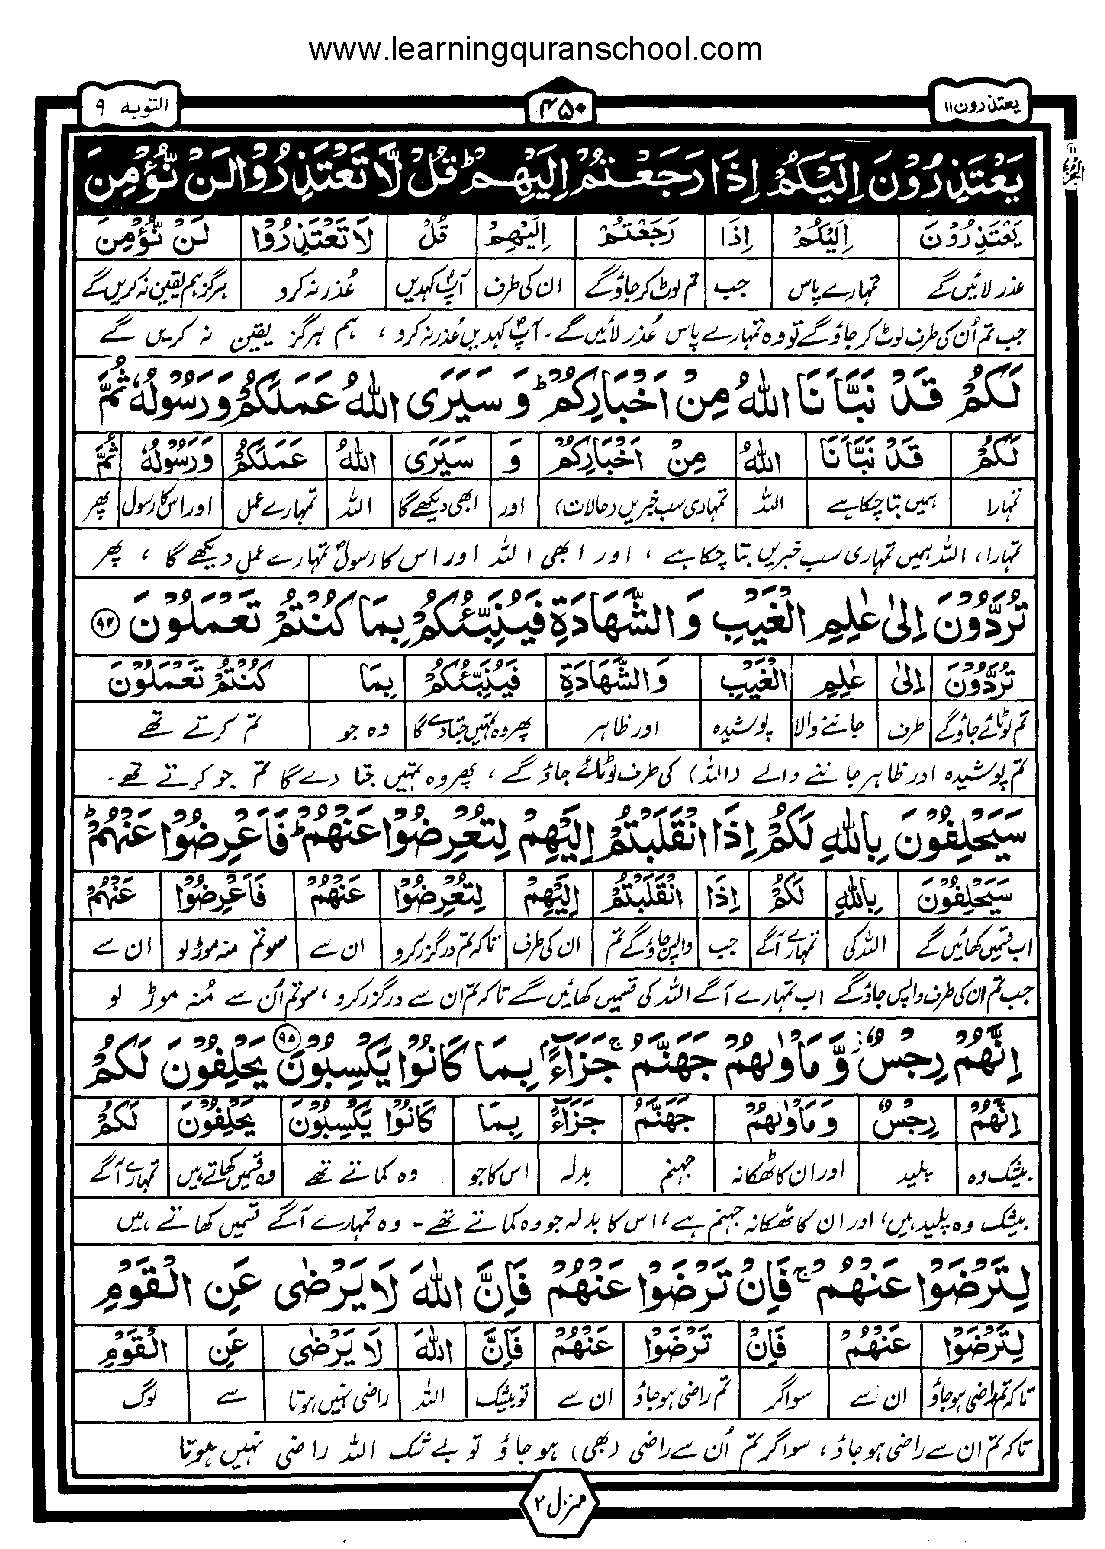 www.learningquranschool.com
یعتذرون ۱۱
۴۵۰
التوبہ ۹
يَعْتَذِرُوْنَ اِلَيْكُمْ اِذَا رَجَعْتُمْ اِلَيْهِمْ ؕ قُلْ لَّا تَعْتَذِرُوْا لَنْ نُّؤْمِنَ
يَعْتَذِرُوْنَ اِلَيْكُمْ اِذَا رَجَعْتُمْ اِلَيْهِمْ قُلْ لَا تَعْتَذِرُوْا لَنْ نُّؤْمِنَ
عذر لائیں گے تمہارے پاس جب تم لوٹ کر جاؤ گے ان کی طرف آپؐ کہدیں عُذر نہ کرو ہرگز ہم یقین نہ کریں گے
جب تم اُن کی طرف لوٹ کر جاؤ گے تو وہ تمہارے پاس عُذر لائیں گے۔ آپؐ کہدیں عُذر نہ کرو ، ہم ہرگز یقین نہ کریں گے
لَكُمْ قَدْ نَبَّاَنَا اللّٰهُ مِنْ اَخْبَارِكُمْ ؕ وَ سَيَرَى اللّٰهُ عَمَلَكُمْ وَ رَسُوْلُهٗ ثُمَّ
لَكُمْ قَدْ نَبَّاَنَا اللّٰهُ مِنْ اَخْبَارِكُمْ وَ سَيَرَى اللّٰهُ عَمَلَكُمْ وَرَسُوْلُهٗ ثُمَّ
تمہارا ہمیں بتا چکا ہے اللہ تمہاری سب خبریں (حالات) اور ابھی دیکھے گا اللہ تمہارے عمل اور اس کا رسول پھر
تمہارا، اللہ ہمیں تمہاری سب خبریں بتا چکا ہے ، اور ابھی اللہ اور اس کا رسولؐ تمہارے عمل دیکھے گا ، پھر
تُرَدُّوْنَ اِلٰى عٰلِمِ الْغَيْبِ وَ الشَّهَادَةِ فَيُنَبِّئُكُمْ بِمَا كُنْتُمْ تَعْمَلُوْنَ ۹۴
تُرَدُّوْنَ اِلٰى عٰلِمِ الْغَيْبِ وَالشَّهَادَةِ فَيُنَبِّئُكُمْ بِمَا كُنْتُمْ تَعْمَلُوْنَ
تم لوٹائے جاؤ گے طرف جاننے والا پوشیدہ اور ظاہر پھر وہ تمہیں جتا دے گا وہ جو تم کرتے تھے
تم پوشیدہ اور ظاہر جاننے والے (اللہ) کی طرف لوٹائے جاؤ گے ، پھر وہ تمہیں جتا دے گا تم جو کرتے تھے۔
سَيَحْلِفُوْنَ بِاللّٰهِ لَكُمْ اِذَا انْقَلَبْتُمْ اِلَيْهِمْ لِتُعْرِضُوْا عَنْهُمْ ؕ فَاَعْرِضُوْا عَنْهُمْ ؕ
سَيَحْلِفُوْنَ بِاللّٰهِ لَكُمْ اِذَا انْقَلَبْتُمْ اِلَيْهِمْ لِتُعْرِضُوْا عَنْهُمْ فَاَعْرِضُوْا عَنْهُمْ
اب قسمیں کھائیں گے اللہ کی تمہارے آگے جب واپس جاؤ گے تم ان کی طرف تاکہ تم درگزر کرو ان سے سو تم منہ موڑ لو ان سے
جب تم ان کی طرف واپس جاؤ گے اب تمہارے آگے اللہ کی قسمیں کھائیں گے تاکہ تم ان سے درگزر کرو ، سو تم اُن سے مُنہ موڑ لو
اِنَّهُمْ رِجْسٌ وَّ مَاْوٰىهُمْ جَهَنَّمُ ۚ جَزَآءًۢ بِمَا كَانُوْا يَكْسِبُوْنَ ۹۵ يَحْلِفُوْنَ لَكُمْ
اِنَّهُمْ رِجْسٌ وَ مَاْوٰىهُمْ جَهَنَّمُ جَزَآءً بِمَا كَانُوْا يَكْسِبُوْنَ يَحْلِفُوْنَ لَكُمْ
بیشک وہ پلید اور ان کا ٹھکانہ جہنم بدلہ اس کا جو وہ کماتے تھے وہ قسمیں کھاتے ہیں تمہارے آگے
بیشک وہ پلید ہیں، اور ان کا ٹھکانہ جہنم ہے، اس کا بدلہ جو وہ کماتے تھے۔ وہ تمہارے آگے قسمیں کھاتے ہیں
لِتَرْضَوْا عَنْهُمْ ۚ فَاِنْ تَرْضَوْا عَنْهُمْ فَاِنَّ اللّٰهَ لَا يَرْضٰى عَنِ الْقَوْمِ
لِتَرْضَوْا عَنْهُمْ فَاِنْ تَرْضَوْا عَنْهُمْ فَاِنَّ اللّٰهَ لَا يَرْضٰى عَنِ الْقَوْمِ
تاکہ تم راضی ہو جاؤ ان سے سو اگر تم راضی ہو جاؤ ان سے تو بیشک اللہ راضی نہیں ہوتا سے لوگ
تاکہ تم ان سے راضی ہو جاؤ، سو اگر تم اُن سے راضی (بھی) ہو جاؤ تو بے شک اللہ راضی نہیں ہوتا
منزل ۲